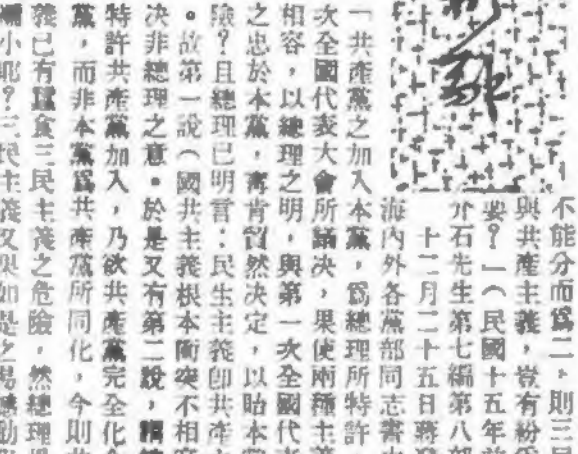 不能分而爲二，則三民
與共產主義，豈有紛
要？」（民國十五年
介石先生第七編第八
十二月二十五日蔣
海內外各黨部同志書
「共產黨之加入本黨，爲總理所特許，
次全國代表大會所議決，果使兩種主義
相容，以總理之明，與第一次全國代表
之忠於本黨，寗肯貿然決定，以貽本黨
險？且總理已明言：民生主義卽共產
。故第一說（國共主義根本衝突不相
決非總理之意。於是又有第二說，
特許共產黨加入，乃欲共產黨完全化
黨，而非本黨爲共產黨所同化，今則
義已有蠶食三民主義之危險，然總理
小耶？三民主義又果如是之易